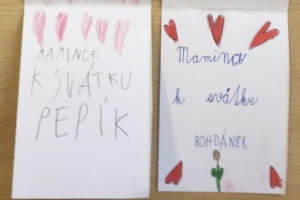 MAMINCE
K SVÁTKU
PEPÍK
Mamince
k svátku
BOHDÁNEK